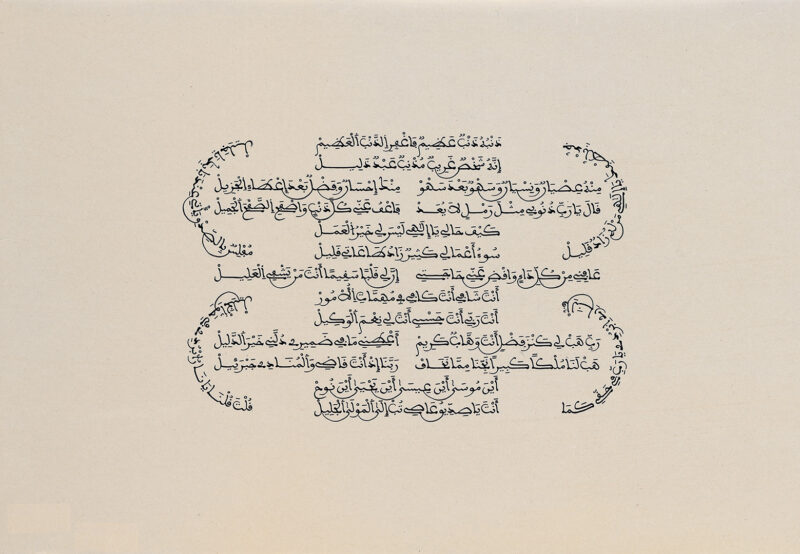 خذ بلطفك يا إلهي من له زاد قليل
مفلس بالصدق يأتي عند بابك يا جليل
ذنبه ذنب عظيم فاغفر الذنب العظيم
إنه شخص غريب مذنب عبد ذليل
منه عصيان ونسيان وسهو بعد سهو منك إحسان وفضل بعد إعطاء الجزيل
قال يا رب ذنوبي مثل رمل لا يعد فاعف عني كل ذنب واصفح الصفح الجميل
كيف حالي يا إلهي ليس لي خير العمل
سوء أعمالي كثير زاد طاعاتي قليل
عافني من كل داء واقض عني حاجتي إن لي قلبا سقيما أنت من يشفي العليل
أنت شافي أنت كافي في مهمات الأمور
أنت ربي أنت حسبي أنت لي نعم الوكيل
رب هب لي كنز فضل أنت وهاب كريم أعطني ما في ضميري دلني خير الدليل
هب لنا ملكا كبيرا نجنا مما نخاف ربنا إذ أنت قاضي والمنادي جبرئيل
أين موسى أين عيسى أين يحيى أين نوح
أنت يا صديق عاصي تب إلى المولى الجليل
يا رب في حقي كما
قلت قلنا يا نار في حق الخليل